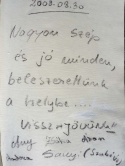 2008.08.30
Nagyon szép
és jó minden,
beleszerettünk
a helybe....
Visszajövünk!